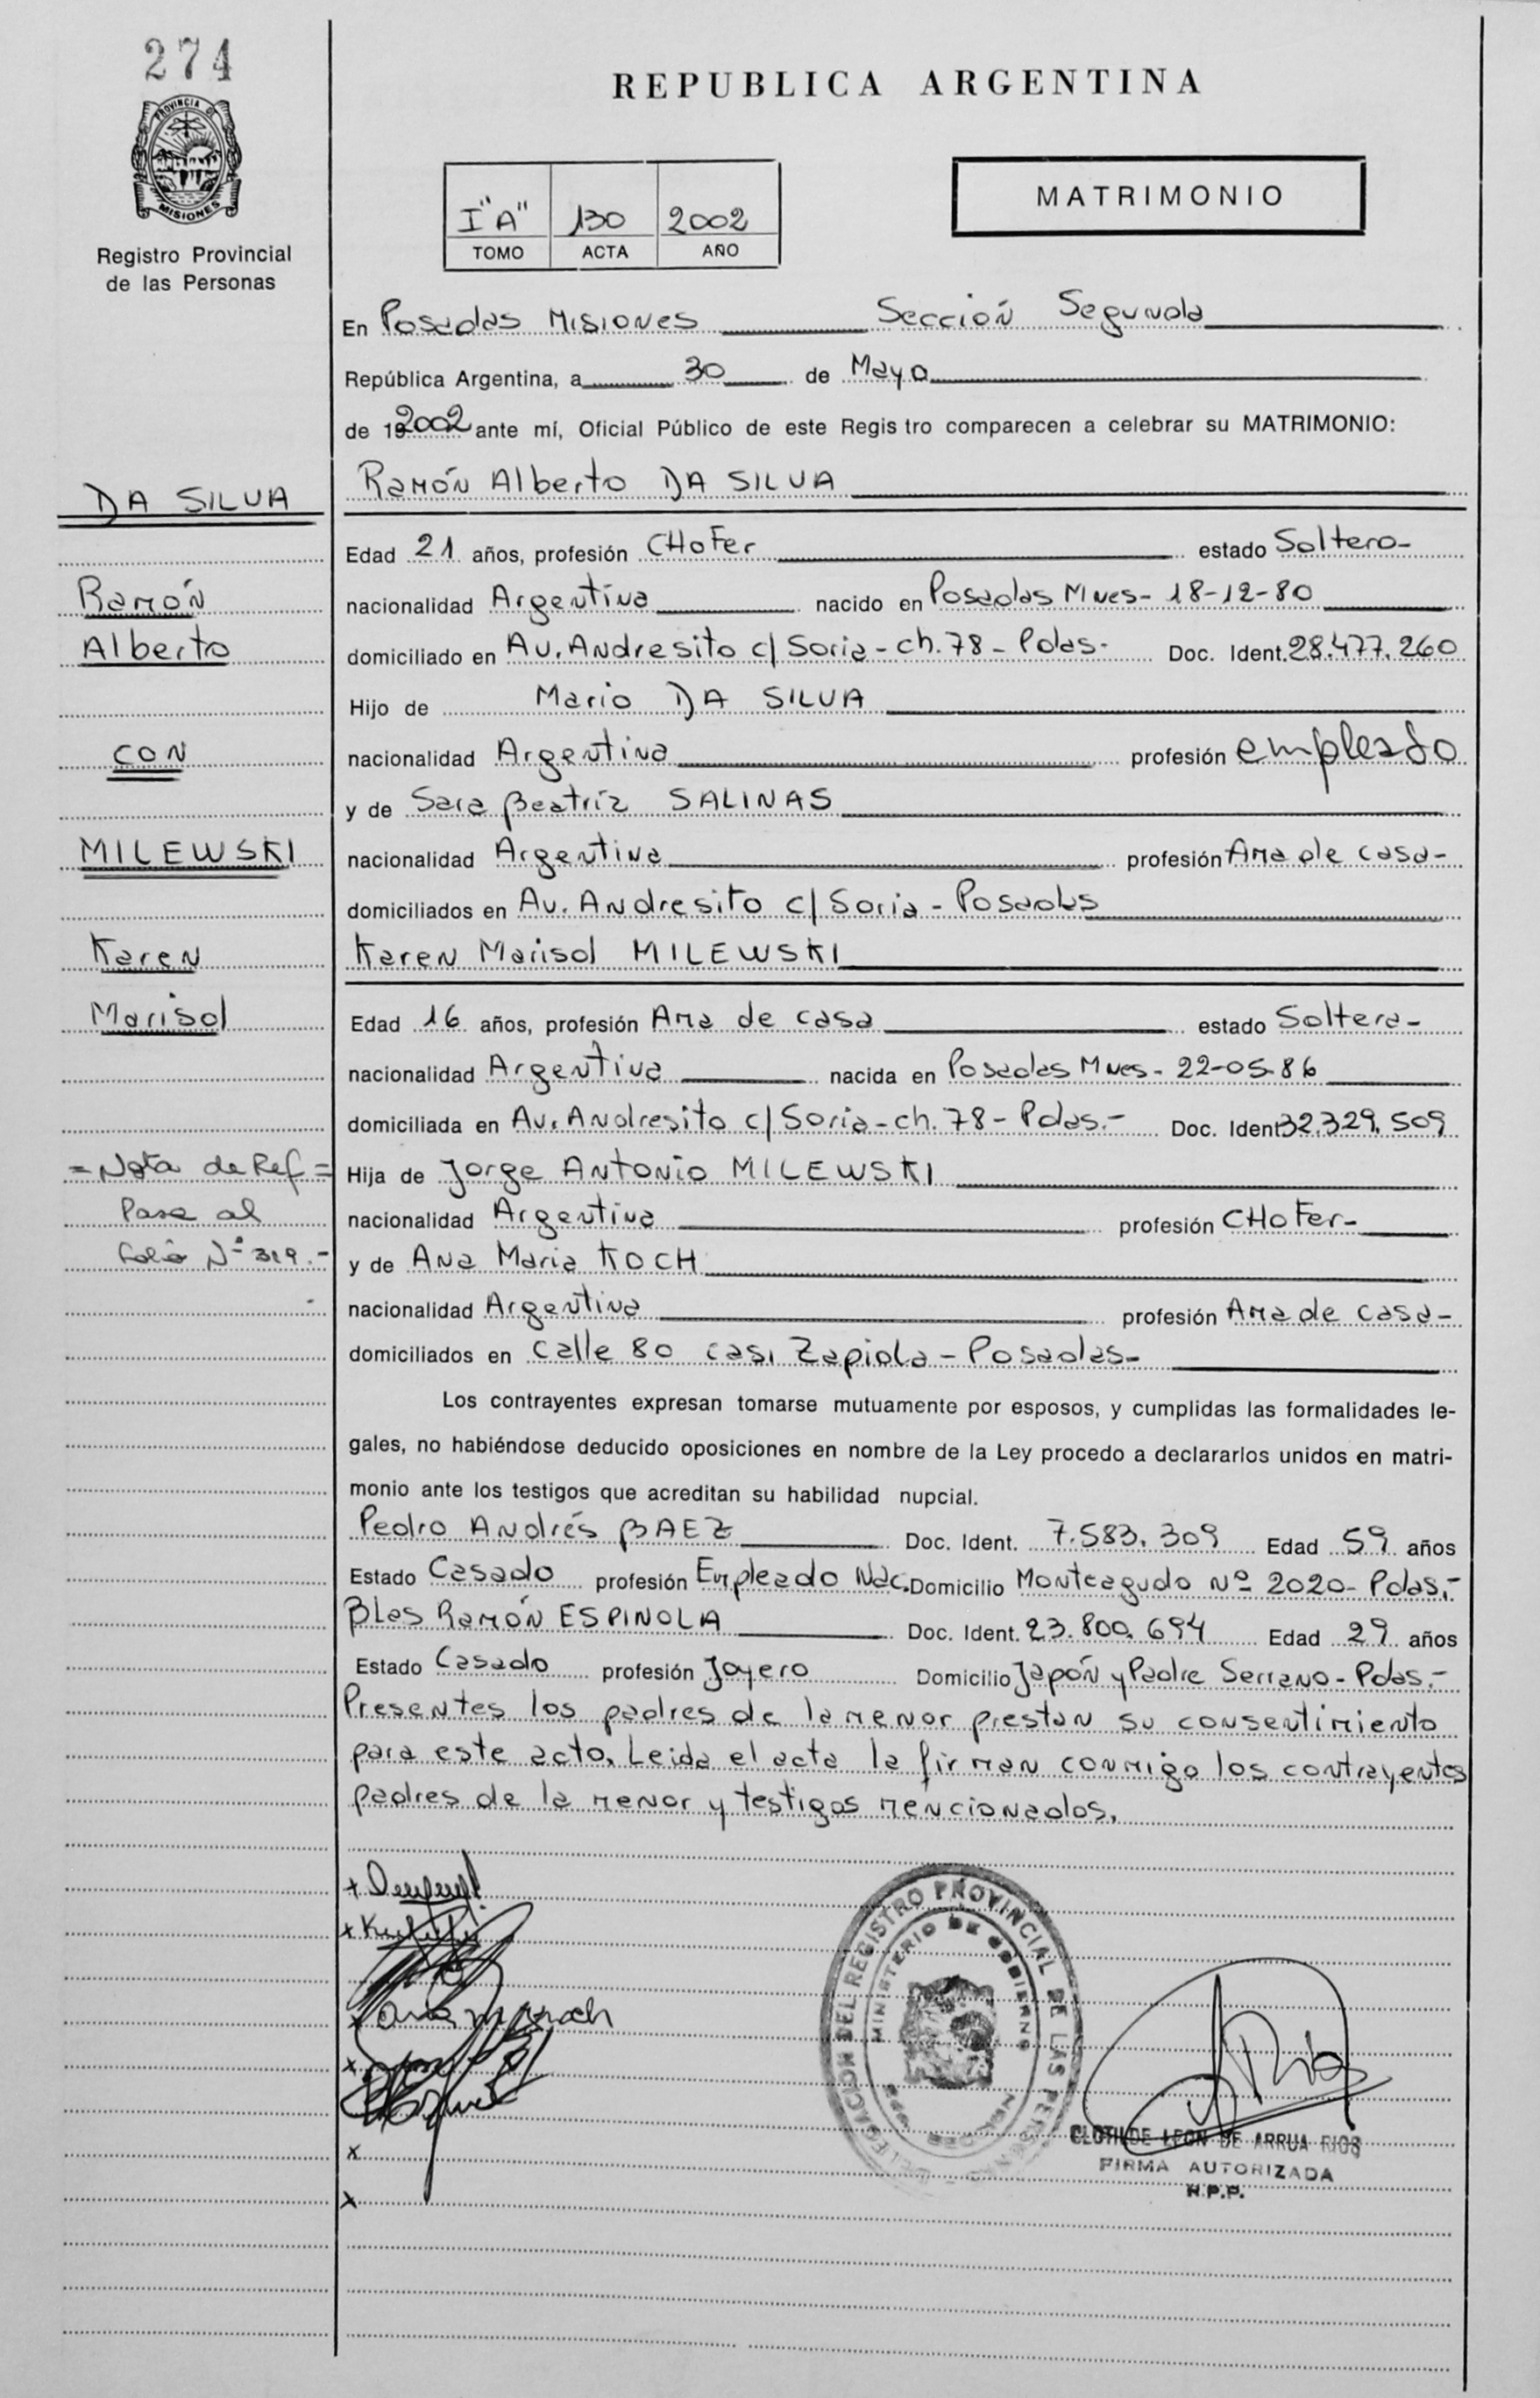 274
PROVINCIA DE
MISIONES
Registro Provincial
de las Personas
REPUBLICA ARGENTINA
MATRIMONIO
I "A" 130 2002
TOMO ACTA AÑO
En Posadas Misiones Sección Segunda
República Argentina, a 30 de Mayo
de 192002 ante mí, Oficial Público de este Regis tro comparecen a celebrar su MATRIMONIO:
Ramón Alberto DA SILVA
DA SILVA
Edad 21 años, profesión CHOFer estado Soltero-
Ramón
nacionalidad Argentina nacido en Posadas Mnes- 18-12-80
Alberto
domiciliado en Av. Andresito c/ Soria - ch. 78 - Pdas- Doc. Ident. 28.477.260
Hijo de Mario DA SILVA
CON
nacionalidad Argentina profesión empleado
y de Sara Beatríz SALINAS
MILEWSKI
nacionalidad Argentina profesión Ama de casa-
domiciliados en Av. Andresito c/ Soria - Posadas
Karen
Karen Marisol MILEWSKI
Marisol
Edad 16 años, profesión Ama de casa estado Soltera-
nacionalidad Argentina nacida en Posadas Mnes- 22-05-86
domiciliada en Av. Andresito c/ Soria - ch. 78 - Pdas.- Doc. Ident 32.329.509
= Nota de Ref =
Hija de Jorge Antonio MILEWSKI
Pase al
nacionalidad Argentina profesión CHOFer-
folio Nº 319.-
y de Ana Maria KOCH
nacionalidad Argentina profesión Ama de casa-
domiciliados en Calle 80 casi Zapiola - Posadas-
Los contrayentes expresan tomarse mutuamente por esposos, y cumplidas las formalidades le-
gales, no habiéndose deducido oposiciones en nombre de la Ley procedo a declararlos unidos en matri-
monio ante los testigos que acreditan su habilidad nupcial.
Pedro Andrés BAEZ Doc. Ident. 7.583.309 Edad 59 años
Estado Casado profesión Empleado Nac. Domicilio Monteagudo Nº 2020- Pdas.-
Blas Ramón ESPINOLA Doc. Ident. 23.800.694 Edad 29 años
Estado Casado profesión Joyero Domicilio Japón y Padre Serrano - Pdas.-
Presentes los padres de la menor prestan su consentimiento
para este acto. Leida el acta la firman conmigo los contrayentes
padres de la menor y testigos mencionados.
DELEGACION DEL REGISTRO PROVINCIAL DE LAS PERSONAS
MINISTERIO DE GOBIERNO
CLOTILDE LEON DE ARRUA RIOS
FIRMA AUTORIZADA
R.P.P.